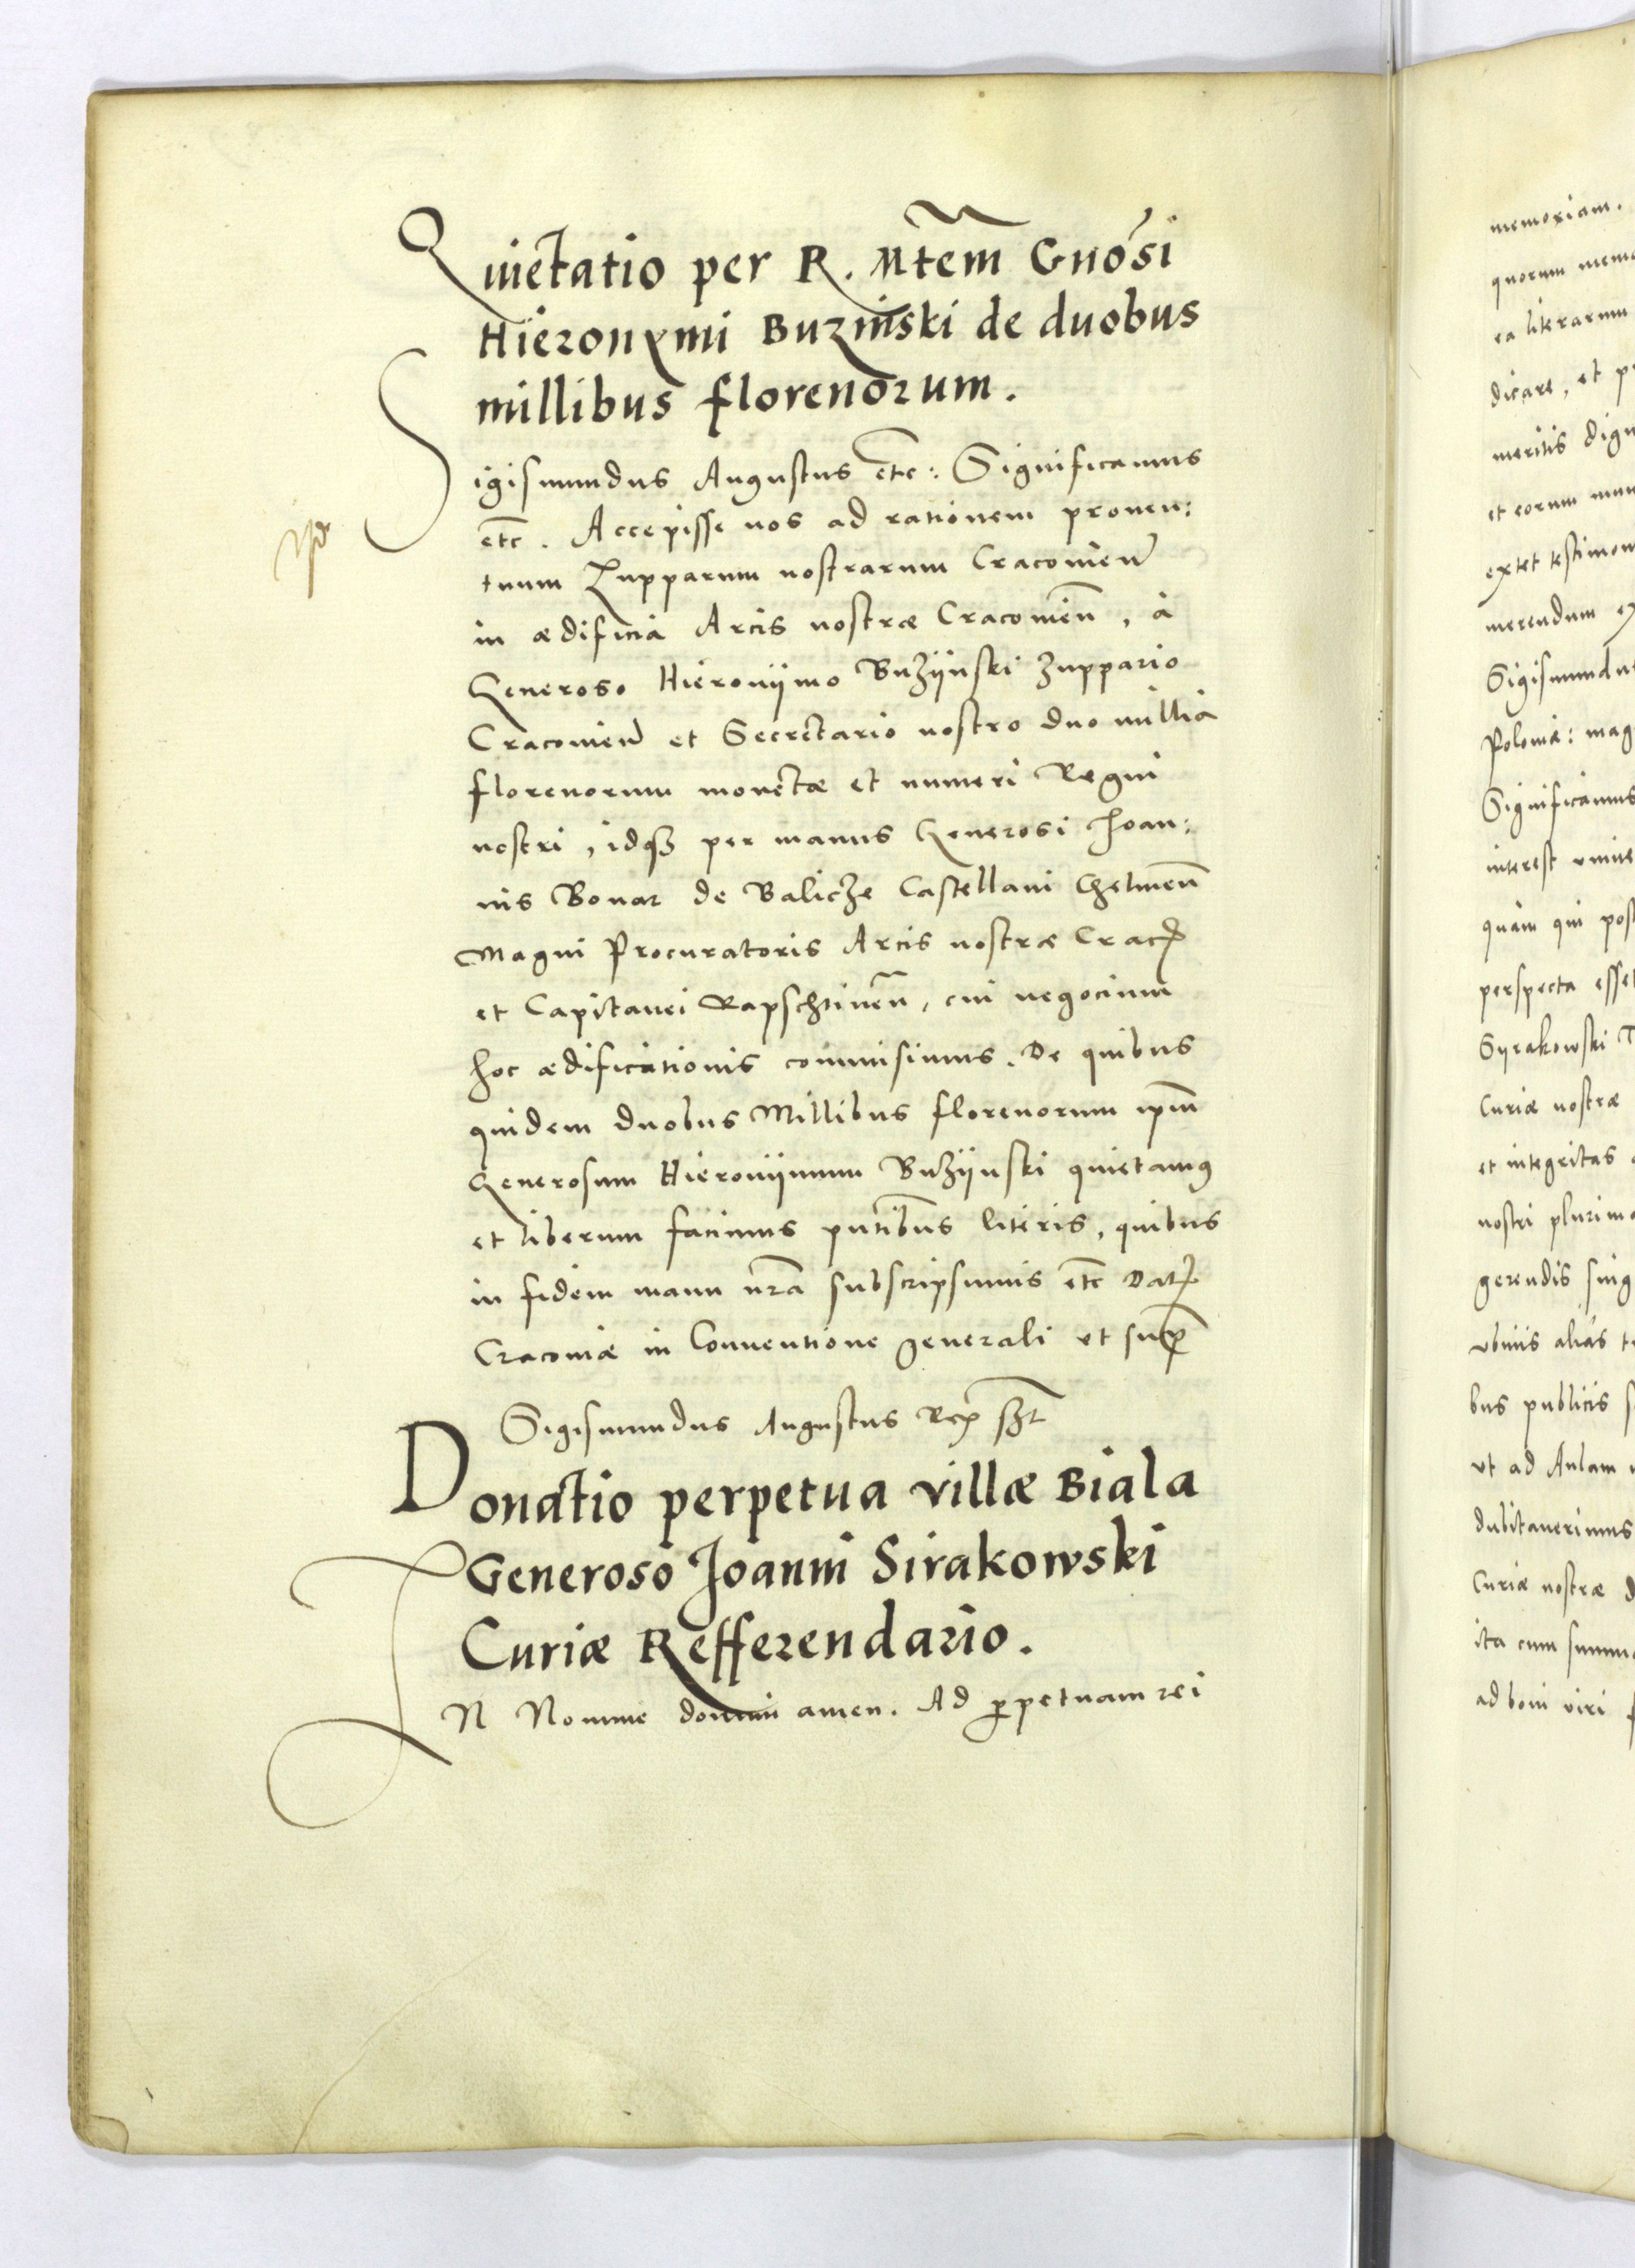 Quietatio per R. Mtem Gnosi
Hieronymi Buzinski de duobus
millibus florenorum.
Sigismundus Augustus etc: Significamus
etc. Accepisse nos ad rationem proven:
tuum Zupparum nostrarum Cracovien
in ædificia Arcis nostræ Cracovien, à
Generoso Hieronijmo Buzijnski Zuppario
Cracovien et Secretario nostro duo millia
florenorum monetæ et numeri Regni
nostri, idqz per manus Generosi Ioan:
nis Bonar de Balicze Castellani Chelmen
Magni Procuratoris Arcis nostræ Crac
et Capitanei Rapschtinen, cui negocium
hoc ædificationis commisimus. De quibus
quidem duobus Millibus florenorum ipm
Generosum Hieronijmum Buzijnski quietamus
et liberum facimus pntibus literis, quibus
in fidem manu nra subscripsimus etc Dat
Cracoviæ in Conventione generali ut sup
Sigismundus Augustus Rex sst
Donatio perpetua villæ Biala
Generoso Joanni Sirakowski
Curiæ Refferendario.
IN Nomine domini amen. Ad perpetuam rei
memoriam.
quorum mem
ea literarum
dicare, et p
meritis dign
et eorum mun
extet testimon
merendum ex
Sigismundu
Poloniæ: mag
Significamus
interest vniue
quàm qui pos
perspecta esse
Syrakowski
Curiæ nostræ
et integritas
nostri plurim
gerendis sing
vbiuis aliàs t
bus publicis s
vt ad Aulam
dubitauerimus
Curiæ nostræ d
ita cum summ
ad boni viri f